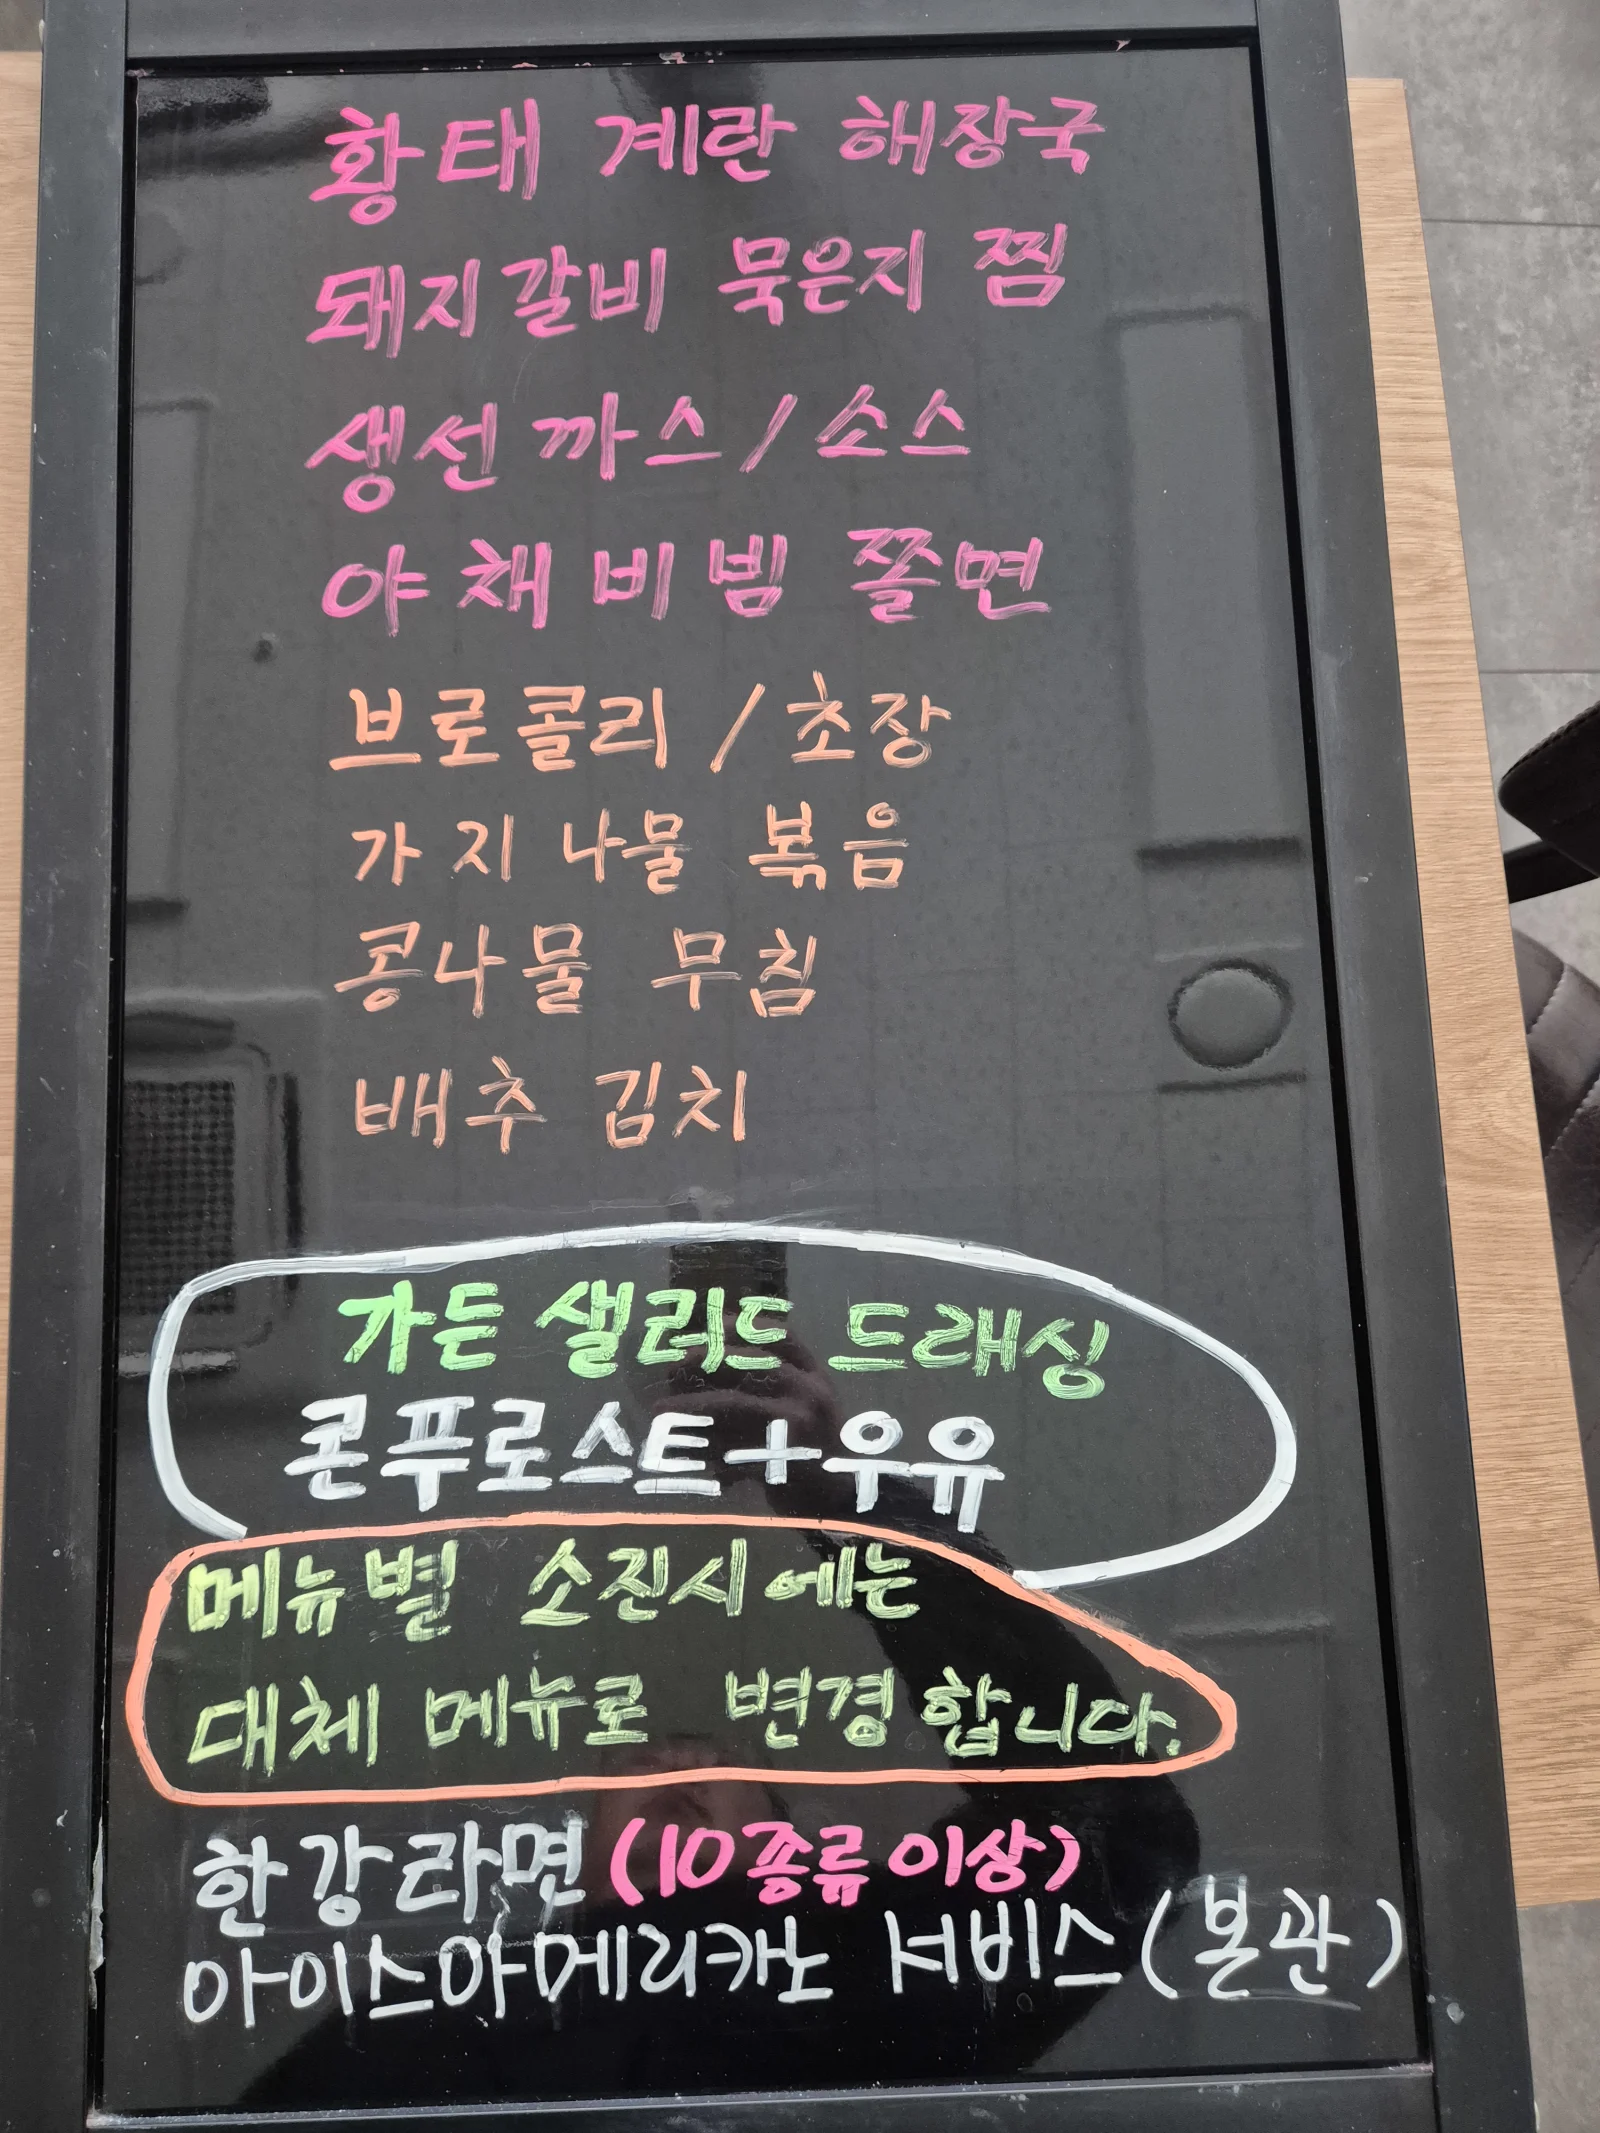 황태 계란 해장국
돼지갈비 묵은지 찜
생선까스/소스
야채비빔 쫄면
브로콜리/초장
가지나물 볶음
콩나물 무침
배추 김치
가든 샐러드 드래싱
콘푸로스트+우유
메뉴별 소진시에는
대체 메뉴로 변경합니다.
한강라면(10종류이상)
아이스아메리카노 서비스(본관)